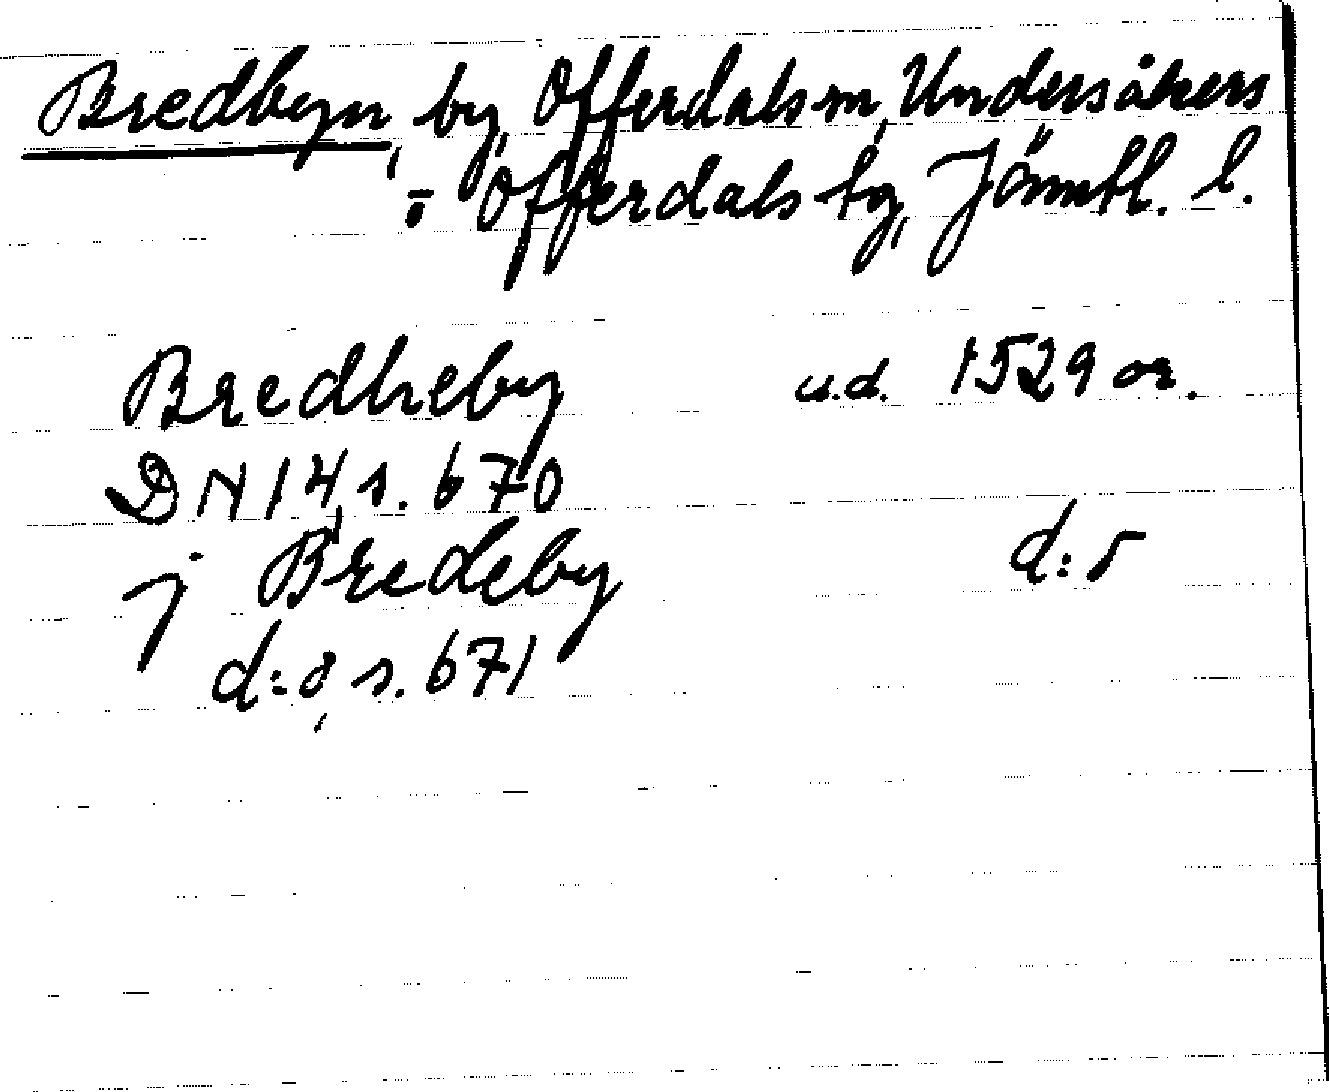 Bredbyn, by, Offerdals sn, Undersåkers
o. Offerdals tg, Jämtl. l.
Bredheby u.d. 1529 or.
DN 14, s. 670
j Bredeby d:o
d:o, s. 671